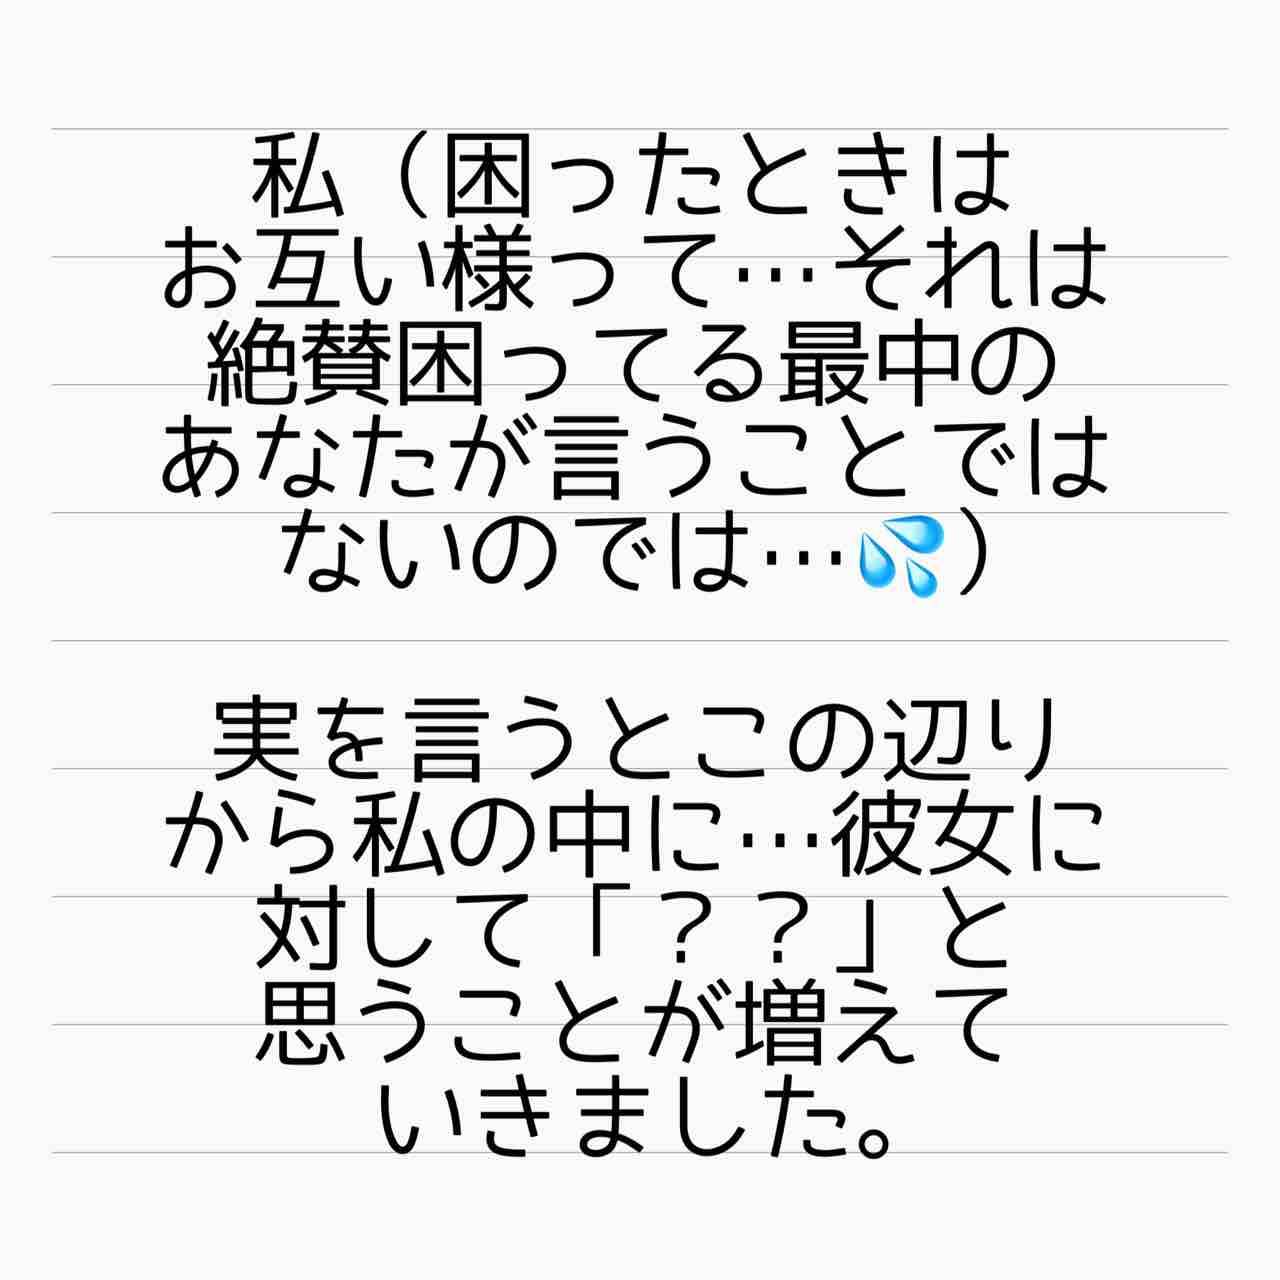 私（困ったときは
お互い様って…それは
絶賛困ってる最中の
あなたが言うことでは
ないのでは…💦）
実を言うとこの辺り
から私の中に…彼女に
対して「？？」と
思うことが増えて
いきました。